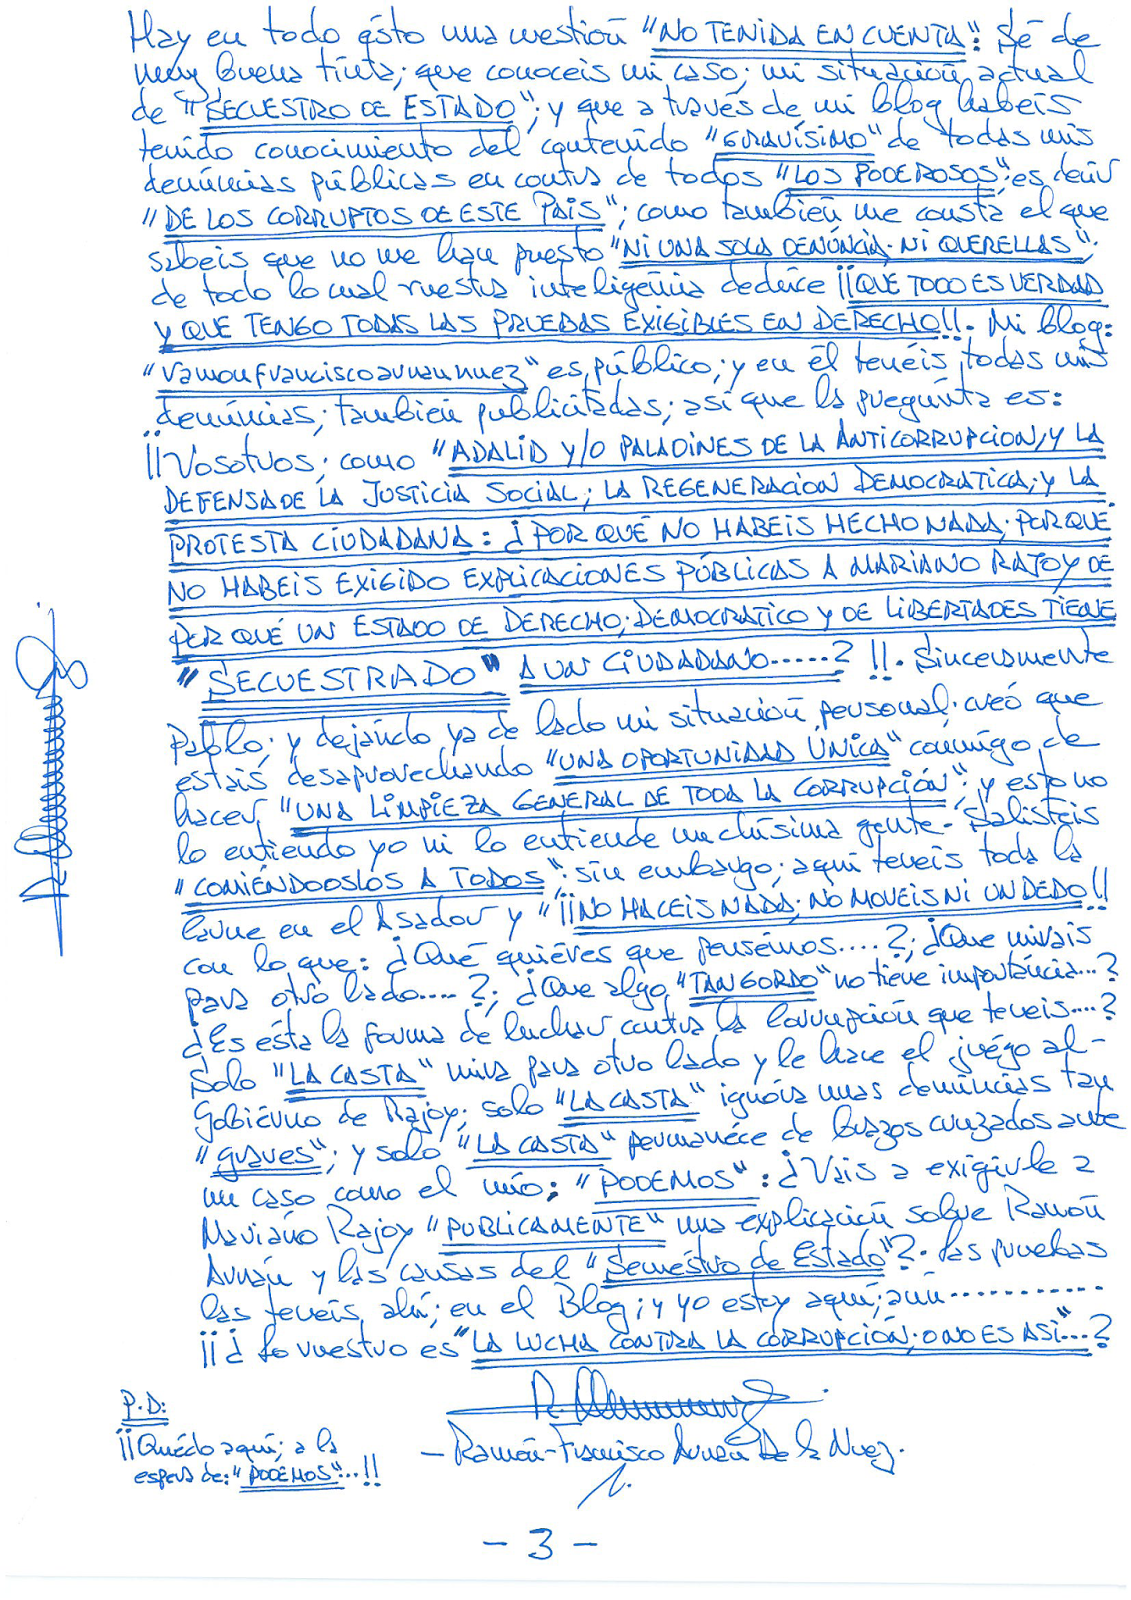 Hay en todo ésto una cuestión "NO TENIDA EN CUENTA": Sé de
muy buena tinta; que conoceis mi caso; mi situación actual
de "SECUESTRO DE ESTADO"; y que a través de mi blog habeis
tenido conocimiento del contenido "GRAVÍSIMO" de todas mis
denúncias públicas en contra de todos "LOS PODEROSOS"; es decir
"DE LOS CORRUPTOS DE ESTE PAÍS"; como también me consta el que
sabeis que no me han puesto "NI UNA SOLA DENÚNCIA; NI QUERELLAS";
de todo lo cual vuestra inteligéncia deduce ¡¡QUE TODO ES VERDAD
Y QUE TENGO TODAS LAS PRUEBAS EXIGIBLES EN DERECHO!!. Mi blog:
"ramonfranciscoarnaunuez" es público; y en él tenéis todas mis
denúncias; también publicitadas; así que la pregúnta es:
¡¡Vosotros; como "ADALID Y/O PALADINES DE LA ANTICORRUPCION, Y LA
DEFENSA DE LA JUSTICIA SOCIAL; LA REGENERACION DEMOCRATICA; Y LA
PROTESTA CIUDADANA: ¿POR QUÉ NO HABEIS HECHO NADA; PORQUE
NO HABEIS EXIGIDO EXPLICACIONES PÚBLICAS A MARIANO RAJOY DE
POR QUÉ UN ESTADO DE DERECHO; DEMOCRATICO Y DE LIBERTADES TIENE
"SECUESTRADO" A UN CIUDADANO.....? !!. Sinceramente
Pablo; y dejándo ya de lado mi situación personal; creó que
estais desaprovechando "UNA OPORTUNIDAD ÚNICA" conmigo, de
hacer "UNA LIMPIEZA GENERAL DE TODA LA CORRUPCIÓN"; y esto no
lo entiendo yo ni lo entiende muchísima gente. Salisteis
"COMIÉNDOOSLOS A TODOS"; sin embargo; aquí teneis toda la
carne en el Asador y "¡¡NO HACEIS NADA; NO MOVEIS NI UN DEDO!!
con lo que: ¿Qué quiéres que pensémos....?; ¿Que mirais
para otro lado....?; ¿Que algo "TAN GORDO" no tiene importáncia...?
¿Es ésta la forma de luchar contra la Corrupción que teneis....?
Solo "LA CASTA" mira para otro lado y le hace el juégo al-
Gobiérno de Rajoy; solo "LA CASTA" ignóra unas denúncias tan
"graves"; y solo "LA CASTA" permanéce de brazos cruzados ante
un caso como el mío; "PODEMOS": ¿Vais a exigirle a
Mariáno Rajoy "PUBLICAMENTE" una explicación sobre Ramón
Arnáu y las causas del "Secuéstro de Estado"?. Las pruebas
las teneis, ahí; en el Blog; y yo estoy aquí; aún............
¡¡¿ Lo vuestro es "LA LUCHA CONTRA LA CORRUPCIÓN; O NO ES ASÍ"...?
P.D:
¡¡Quédo aquí; a la
espera de: "PODEMOS"...!!
- Ramón-Francisco Arnau De la Nuez.
- 3 -